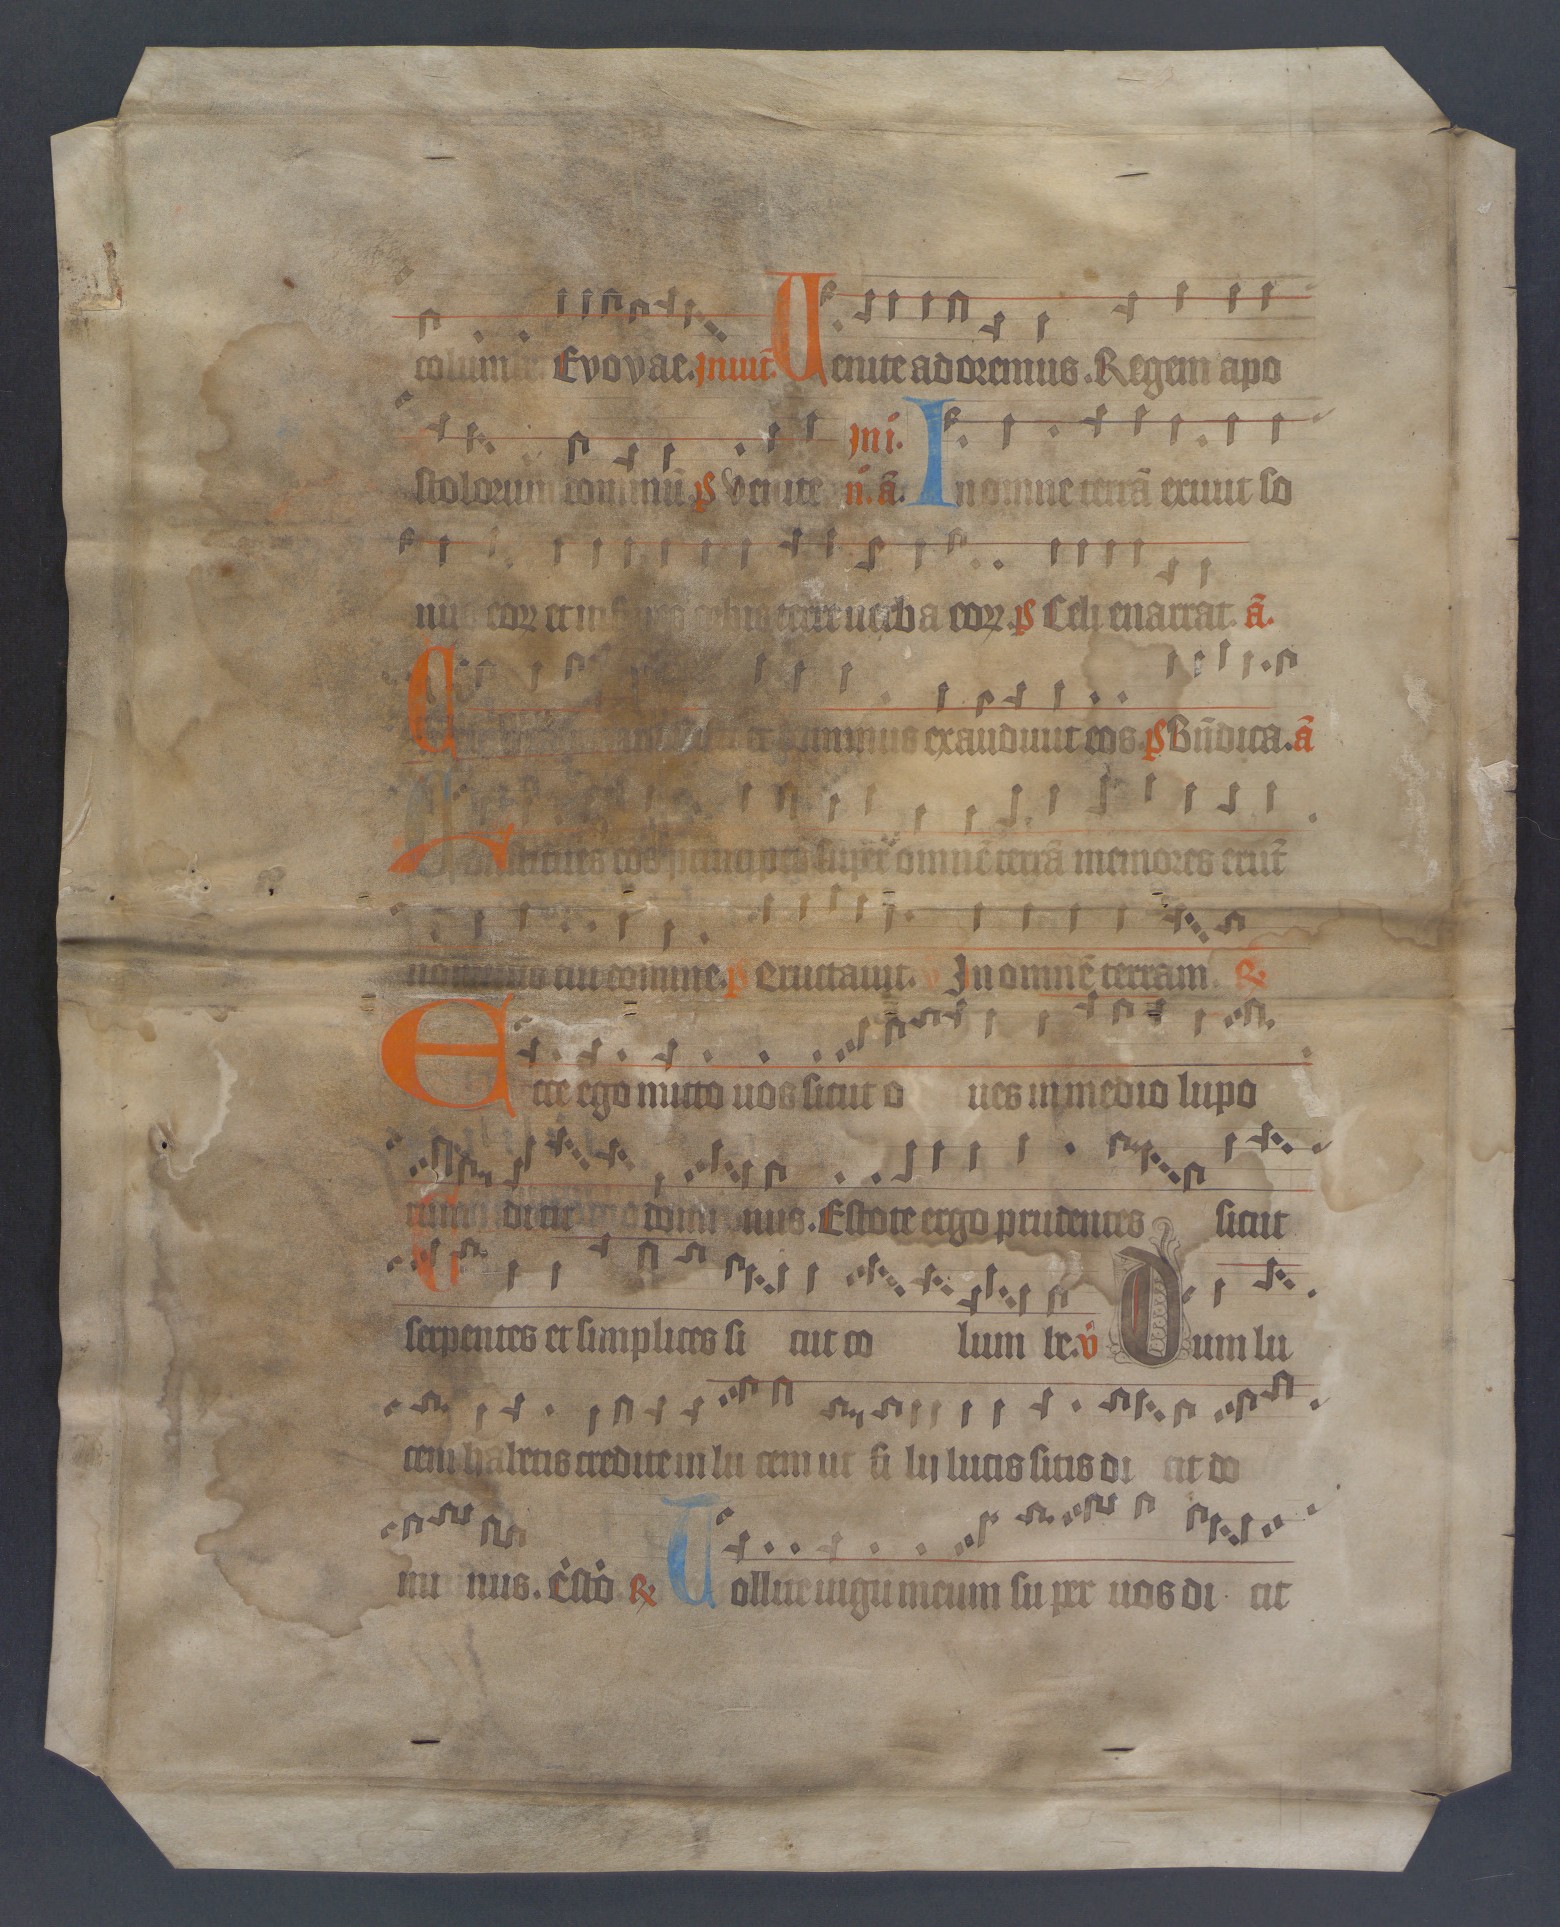 columbe. Evovae. Inuit̄. Uenite adoremus. Regem apo
stolorum dominū ps Venite Ini.
ī. n. ā. In omnē terrā exiuit so
nus eoꝝ et in fines orbis terre uerba eoꝝ. ps Celi enarrāt. ā.
et dominus exaudiuit eos. ps Bn̄dica. ā
Constitues eos principes super omnē terrā memores erūt
nominis tui domine. ps Eructauit. v In omnē terram. ℟
Ecce ego mitto uos sicut o ues in medio lupo
rum dicit domi nus. Estote ergo prudentes sicut
serpentes et simplices si cut co lum be. v̄ Dum lu
cem habetis credite in lu cem ut fi lij lucis sitis di cit do
mi nus. Estō ℟ Tollite iugū meum su per uos di cit